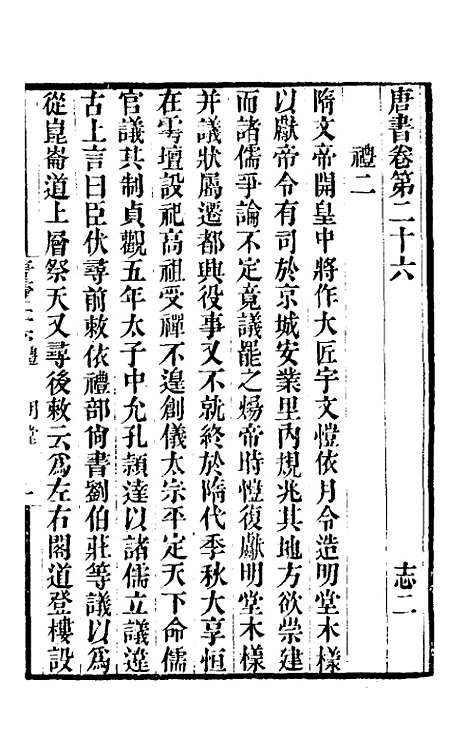 唐書卷第二十六　志二
禮二
隋文帝開皇中將作大匠宇文愷依月令造明堂木樣
以獻帝令有司於京城安業里內規兆其地方欲崇建
而諸儒爭論不定竟議罷之煬帝時愷復獻明堂木樣
并議狀屬遷都興役事又不就終於隋代季秋大享恒
在雩壇設祀高祖受禪不遑創儀太宗平定天下命儒
官議其制貞觀五年太子中允孔頴達以諸儒立議違
古上言曰臣伏尋前敕依禮部尙書劉伯莊等議以爲
從崑崙道上層祭天又尋後敕云爲左右閣道登樓設